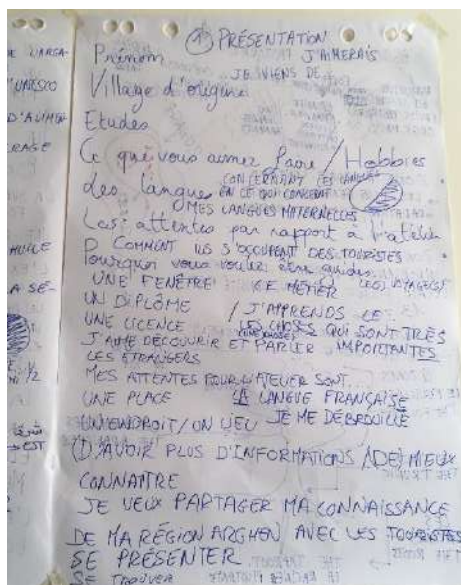 ① PRÉSENTATION
Prénom J'AIMERAIS
JE VIENS DE...
Village d'origine
Etudes
Ce que vous aimez faire / Hobbies
CONCERNANT LES LANGUES
des langues EN CE QUI CONCERNE
MES LANGUES MATERNELLES
Les attentes par rapport à l'atelier
D COMMENT ILS S'OCCUPENT DES TOURISTES
Pourquoi vous voulez être guides
UNE FENÊTRE LE MÉTIER LES VOYAGES
UN DIPLÔME / J'APPRENDS LE
UNE LICENCE LES CHOSES QUI SONT TRÈS
J'AIME DÉCOUVRIR ET PARLER IMPORTANTES
LES ÉTRANGERS
MES ATTENTES POUR L'ATELIER SONT...
UNE PLACE LA LANGUE FRANÇAISE
UN ENDROIT / UN LIEU JE ME DÉBROUILLE
(D')AVOIR PLUS D'INFORMATIONS / (DE) MIEUX
CONNAITRE
JE VEUX PARTAGER MA CONNAISSANCE
DE MA RÉGION ARGHEN AVEC LES TOURISTES
SE PRÉSENTER
SE TROUVER